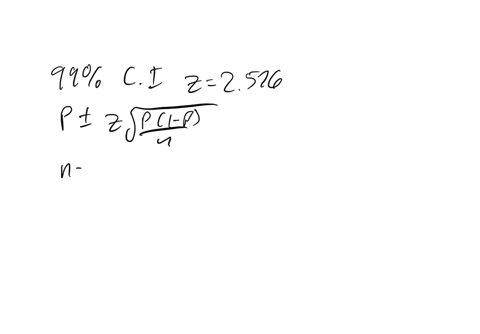 99% C.I z=2.576
P ± z√P(1-P)/n
n-